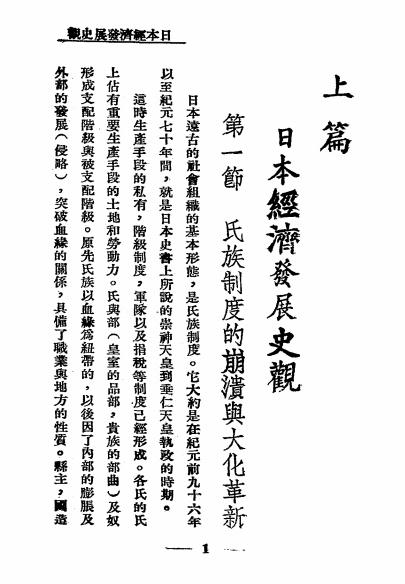 日本經濟發展史觀
上篇
日本經濟發展史觀
第一節　氏族制度的崩潰與大化革新
日本遠古的社會組織的基本形態，是氏族制度。它大約是在紀元前九十六年
以至紀元七十年間，就是日本史書上所說的崇神天皇到垂仁天皇執政的時期。
這時生產手段的私有，階級制度，軍隊以及捐稅等制度已經形成。各氏的氏
上佔有重要生產手段的土地和勞動力。氏與部（皇室的品部，貴族的部曲）及奴
形成支配階級與被支配階級。原先氏族以血緣爲紐帶的，以後因了內部的膨脹及
外部的發展（侵略），突破血緣的關係，具備了職業與地方的性質。縣主，國造
— 1 —